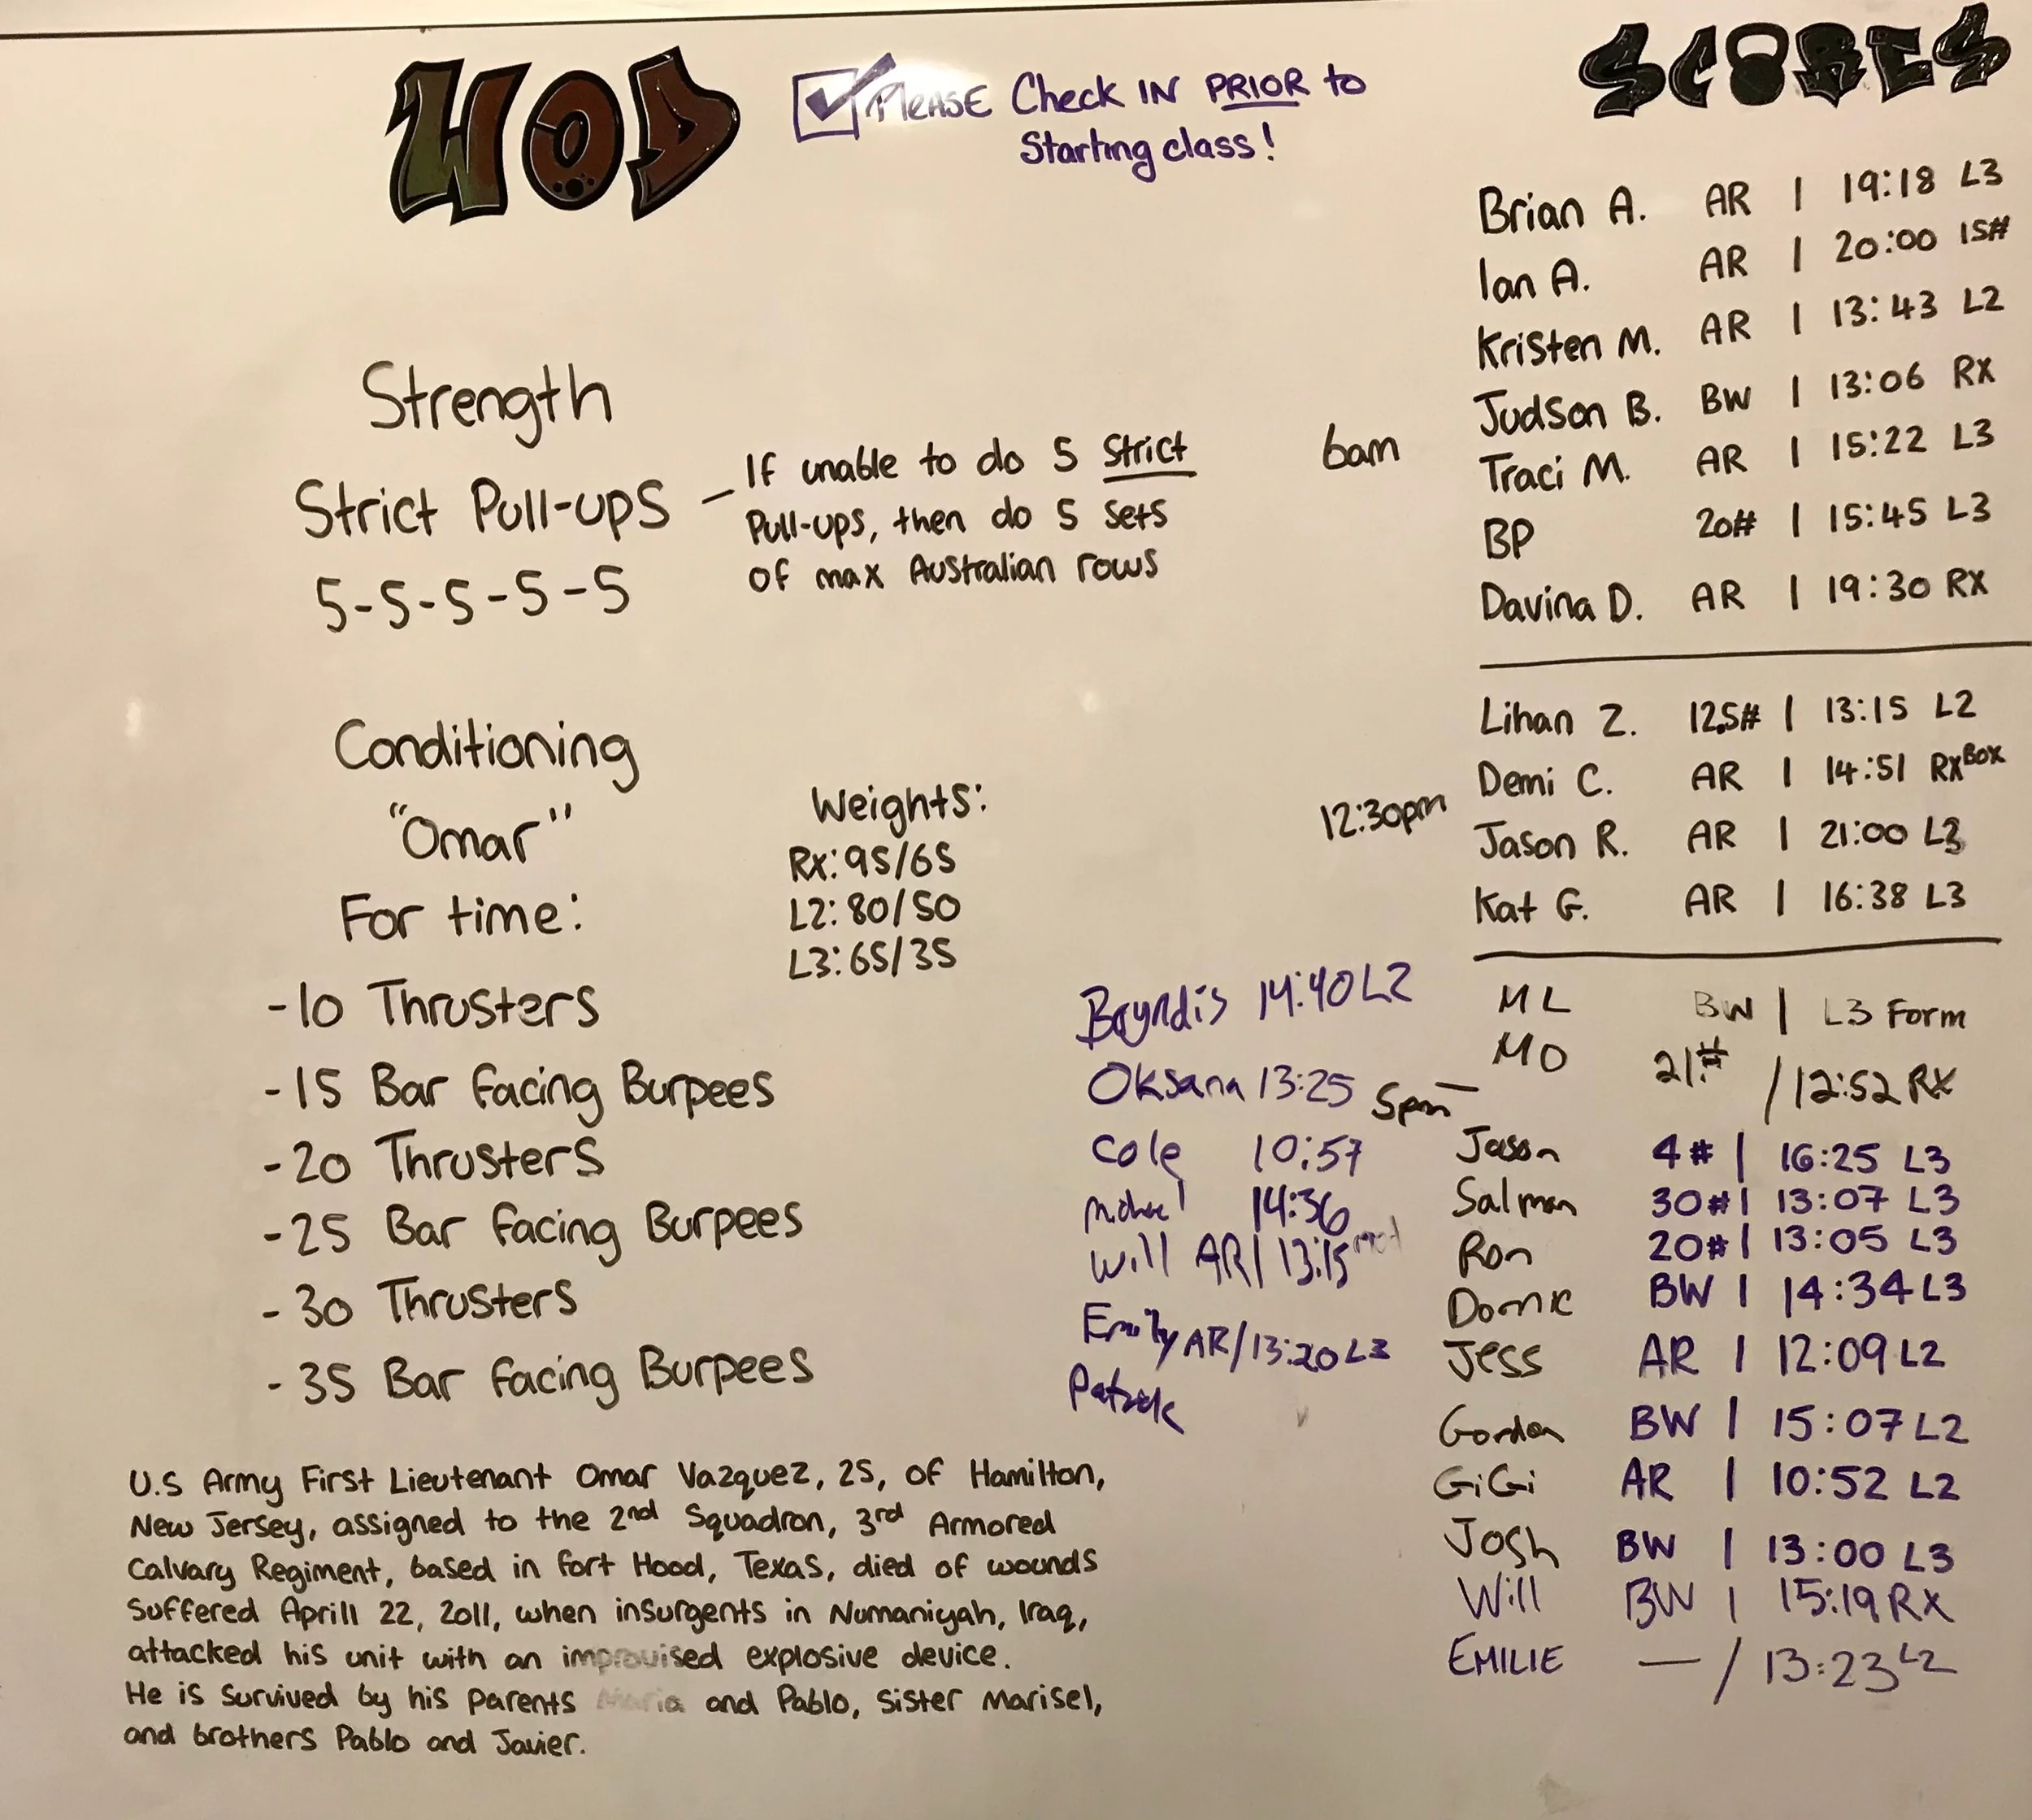 WOD
PLEASE Check IN PRIOR to
Starting class!
Strength
Strict Pull-ups –
5-5-5-5-5
If unable to do 5 Strict
Pull-ups, then do 5 sets
of max Australian rows
Conditioning
"Omar"
For time:
-10 Thrusters
-15 Bar Facing Burpees
-20 Thrusters
-25 Bar Facing Burpees
-30 Thrusters
-35 Bar Facing Burpees
Weights:
Rx: 95/65
L2: 80/50
L3: 65/35
U.S Army First Lieutenant Omar Vazquez, 25, of Hamilton,
New Jersey, assigned to the 2nd Squadron, 3rd Armored
Calvary Regiment, based in Fort Hood, Texas, died of wounds
suffered Aprill 22, 2011, when insurgents in Numaniyah, Iraq,
attacked his unit with an improvised explosive device.
He is survived by his parents Maria and Pablo, sister Marisel,
and brothers Pablo and Javier.
SCORES
6am
Brian A. AR | 19:18 L3
Ian A. AR | 20:00 15#
Kristen M. AR | 13:43 L2
Judson B. BW | 13:06 Rx
Traci M. AR | 15:22 L3
BP 20# | 15:45 L3
Davina D. AR | 19:30 RX
12:30pm
Lihan Z. 12.5# | 13:15 L2
Demi C. AR | 14:51 RX BOX
Jason R. AR | 21:00 L3
Kat G. AR | 16:38 L3
5pm –
ML BW | L3 Form
MO 21.# / 12:52 RX
Jason 4# | 16:25 L3
Salman 30# | 13:07 L3
Ron 20# | 13:05 L3
Domic BW | 14:34 L3
Jess AR | 12:09 L2
Gordon BW | 15:07 L2
GiGi AR | 10:52 L2
Josh BW | 13:00 L3
Will BW | 15:19 RX
EMILIE — / 13:23 L2
Bryndis 14:40 L2
Oksana 13:25
Cole 10:57
Michael 14:36
Will AR | 13:15
Emily AR / 13:20 L3
Patrick